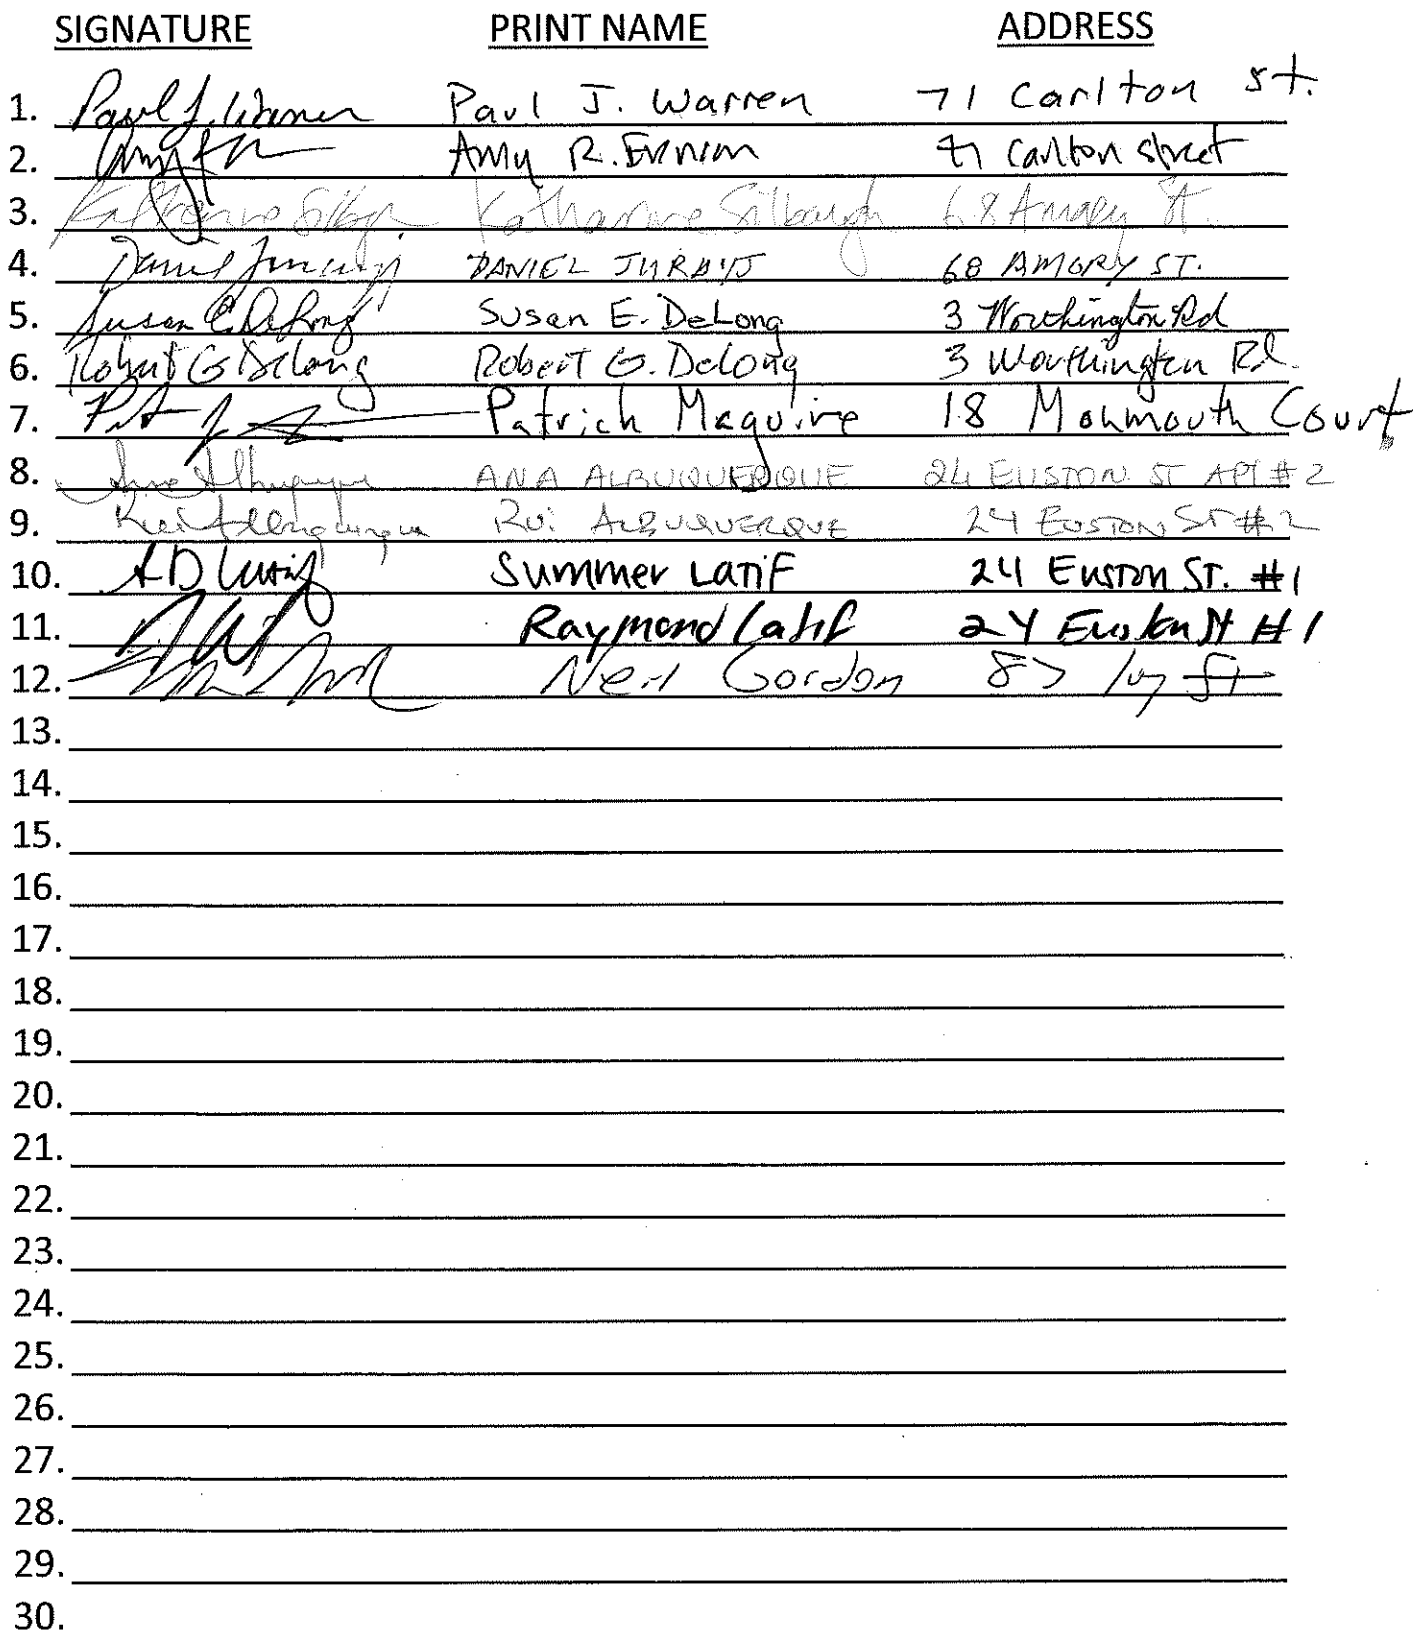 SIGNATURE PRINT NAME ADDRESS
1. Paul J. Warren Paul J. Warren 71 Carlton St.
2. Amy R. 71 Carlton Street
3. Katharine Silbaugh Katharine Silbaugh 68 Amory St.
4. Daniel DANIEL 68 AMORY ST.
5. Susan E. DeLong Susan E. DeLong 3 Worthington Rd
6. Robert G DeLong Robert G. DeLong 3 Worthington Rd.
7. Patrick Maguire 18 Monmouth Court
8. Ana Albuquerque ANA ALBUQUERQUE 24 EUSTON ST APT #2
9. Rui Albuquerque Rui ALBUQUERQUE 24 EUSTON ST #2
10. Summer Latif 24 Euston St. #1
11. Raymond Latif 24 Euston St #1
12. Neil Gordon 87 Ivy St
13.
14.
15.
16.
17.
18.
19.
20.
21.
22.
23.
24.
25.
26.
27.
28.
29.
30.